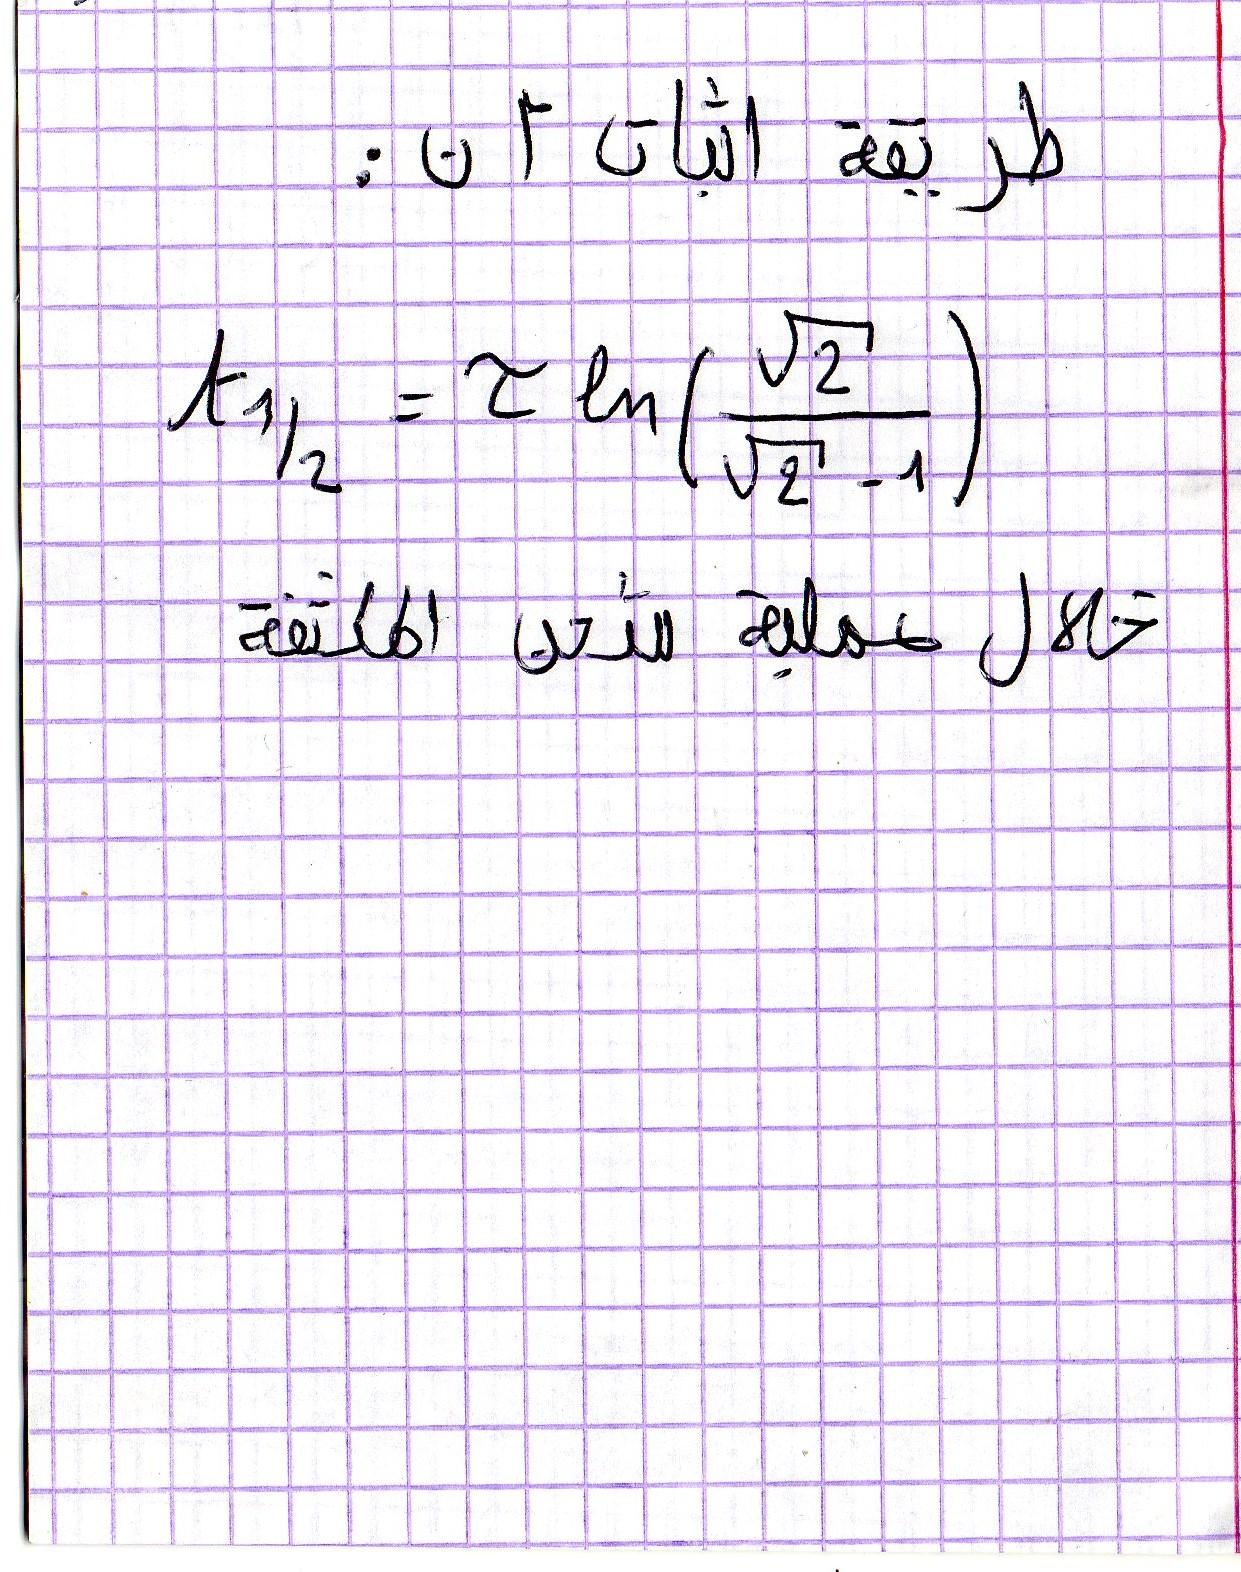 طريقة اثبات أن :
t1/2 = τ ln(√2 / (√2 - 1))
خلال عملية شحن المكثفة